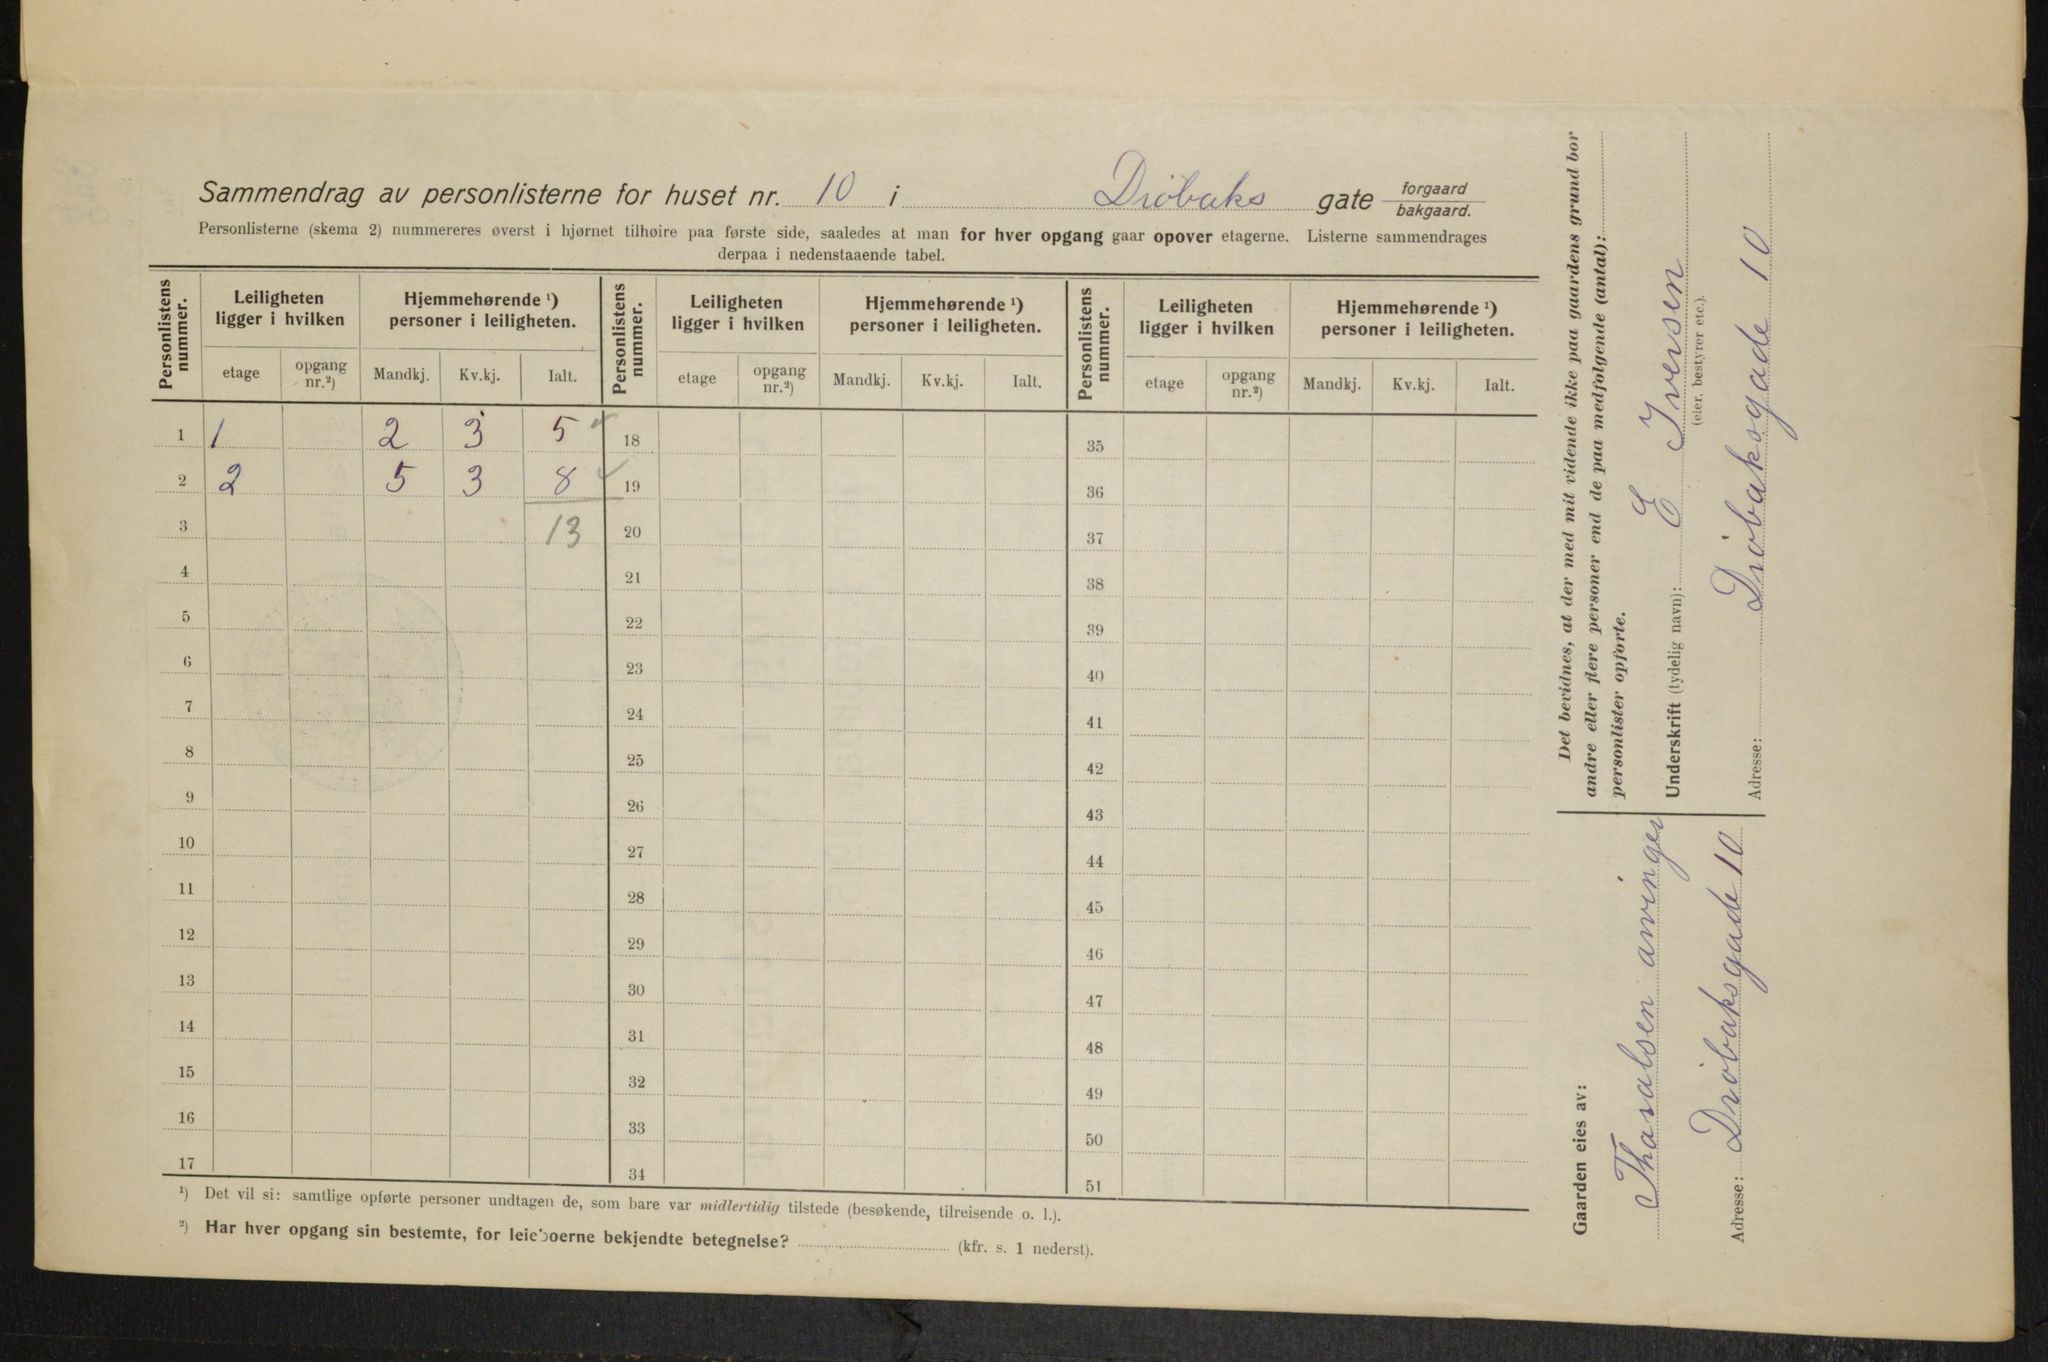 Sammendrag av personlisterne for huset nr. 10 i Drøbaks gate forgaard bakgaard.
Personlisterne (skema 2) nummereres øverst i hjørnet tilhøire paa første side, saaledes at man for hver opgang gaar opover etagerne. Listerne sammendrages
derpaa i nedenstaaende tabel.
Personlistens nummer. Leiligheten ligger i hvilken Hjemmehørende ¹) personer i leiligheten. Personlistens nummer. Leiligheten ligger i hvilken Hjemmehørende ¹) personer i leiligheten. Personlistens nummer. Leiligheten ligger i hvilken Hjemmehørende ¹) personer i leiligheten.
etage opgang nr.²) Mandkj. Kv.kj. Ialt. etage opgang nr.²) Mandkj. Kv.kj. Ialt. etage opgang nr.²) Mandkj. Kv.kj. Ialt.
1 1 2 3 5 18 35
2 2 5 3 8 19 36
3 13 20 37
4 21 38
5 22 39
6 23 40
7 24 41
8 25 42
9 26 43
10 27 44
11 28 45
12 29 46
13 30 47
14 31 48
15 32 49
16 33 50
17 34 51
¹) Det vil si: samtlige opførte personer undtagen de, som bare var midlertidig tilstede (besøkende, tilreisende o. l.).
²) Har hver opgang sin bestemte, for leieboerne bekjendte betegnelse? (kfr. s. 1 nederst).
Det bevidnes, at der med mit vidende ikke paa gaardens grund bor
andre eller flere personer end de paa medfølgende (antal):
personlister opførte.
Underskrift (tydelig navn): E Iversen
(eier, bestyrer etc.).
Adresse: Drøbaksgade 10
Gaarden eies av:
Tharalsen arvinger
Adresse: Drøbaksgade 10